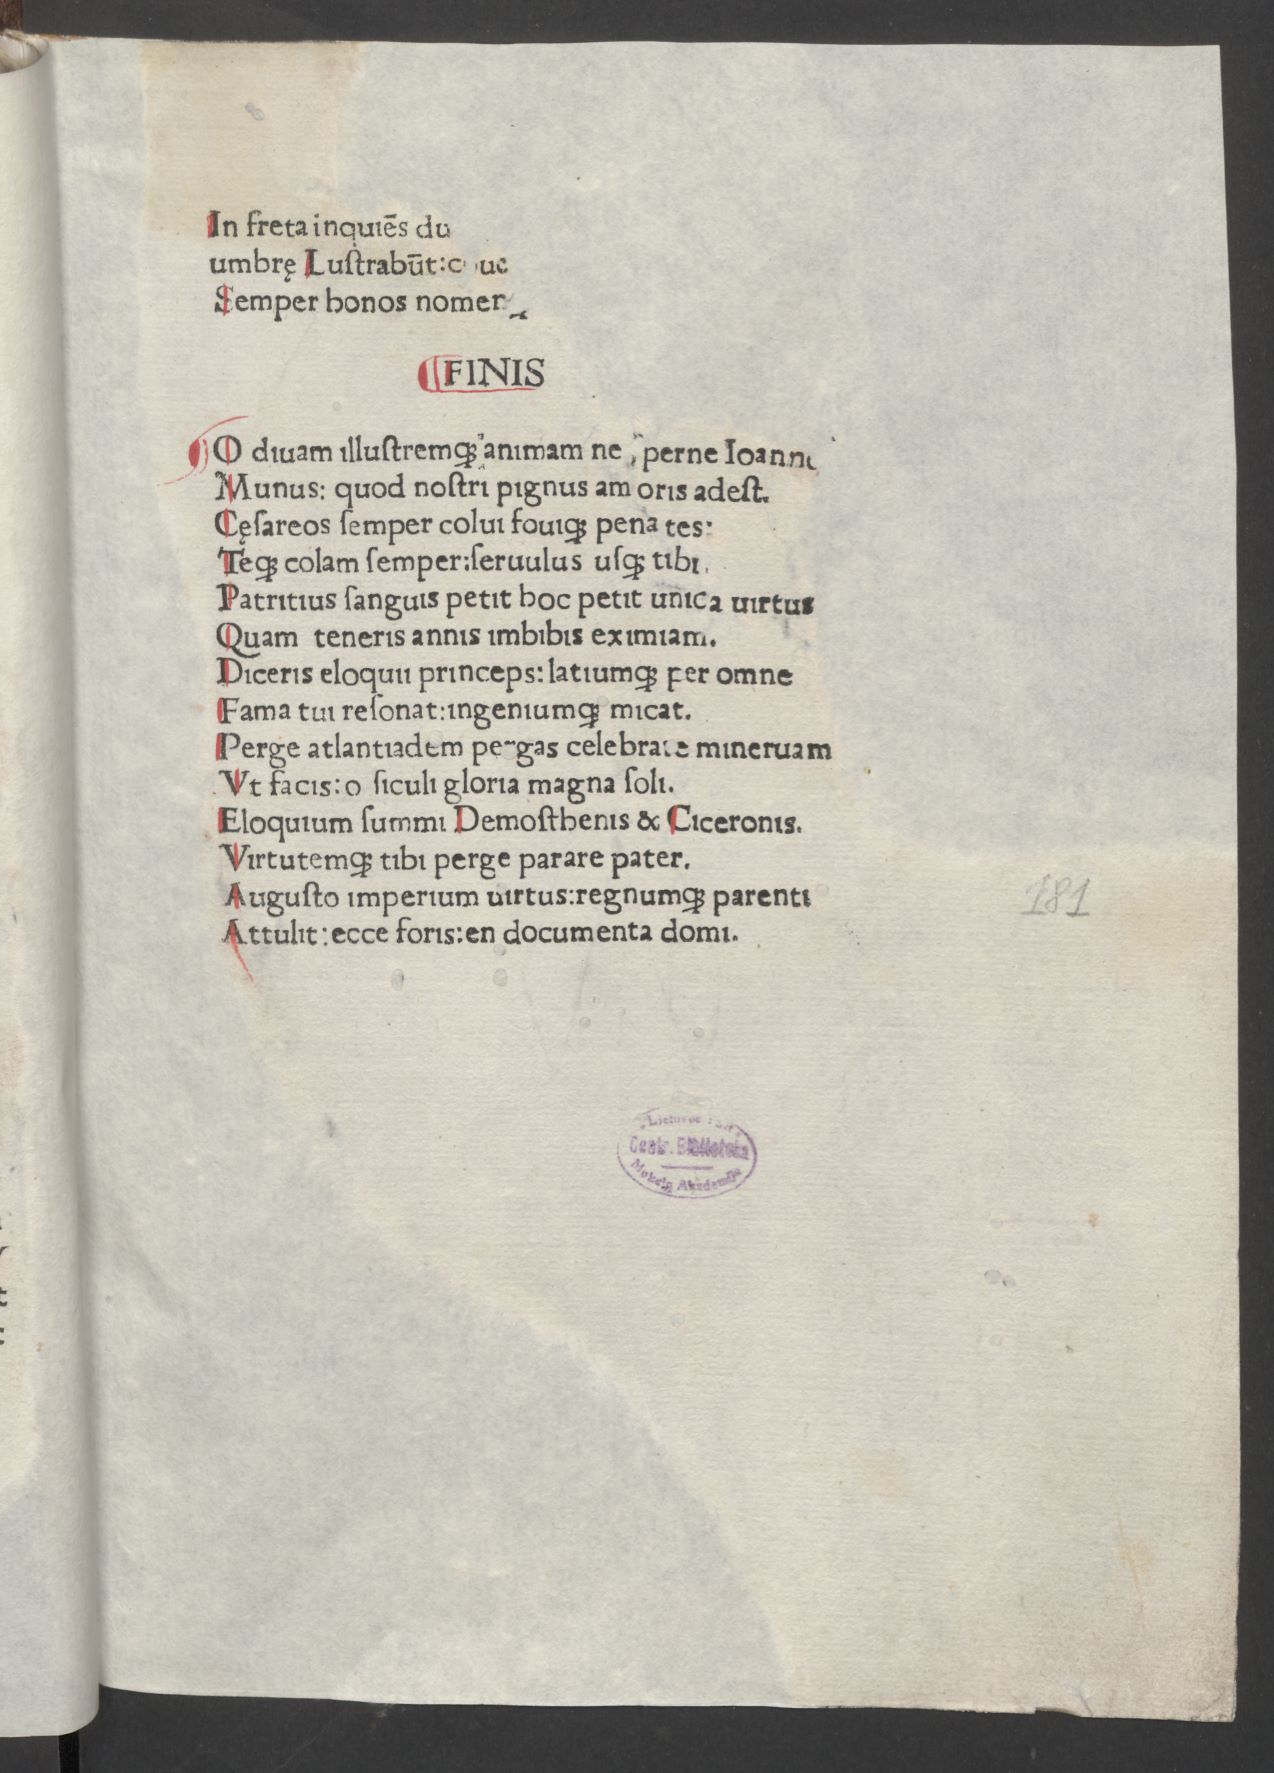 In freta inquiēs du
umbrę Luſtrabūt:
Semper honos nomen
FINIS
O diuam illuſtremqꝫ animam ne ſperne Ioannı
Munus: quod noſtri pignus amoris adeſt.
Cęſareos ſemper colui fouiqꝫ penates:
Teqꝫ colam ſemper:ſeruulus uſqꝫ tibi.
Patritius ſanguis petit hoc petit unica uirtus
Quam teneris annis imbibis eximiam.
Diceris eloquii princeps: latiumqꝫ per omne
Fama tui reſonat:ingeniumqꝫ micat.
Perge atlantiadem pergas celebrare mineruam
Vt facis:o ſiculi gloria magna ſoli.
Eloquium ſummi Demoſthenis & Ciceronis.
Virtutemqꝫ tibi perge parare pater.
Auguſto imperium uirtus:regnumqꝫ parenti
Attulit:ecce foris:en documenta domi.
181
Centr. Biblioteka
Mokslų Akademija